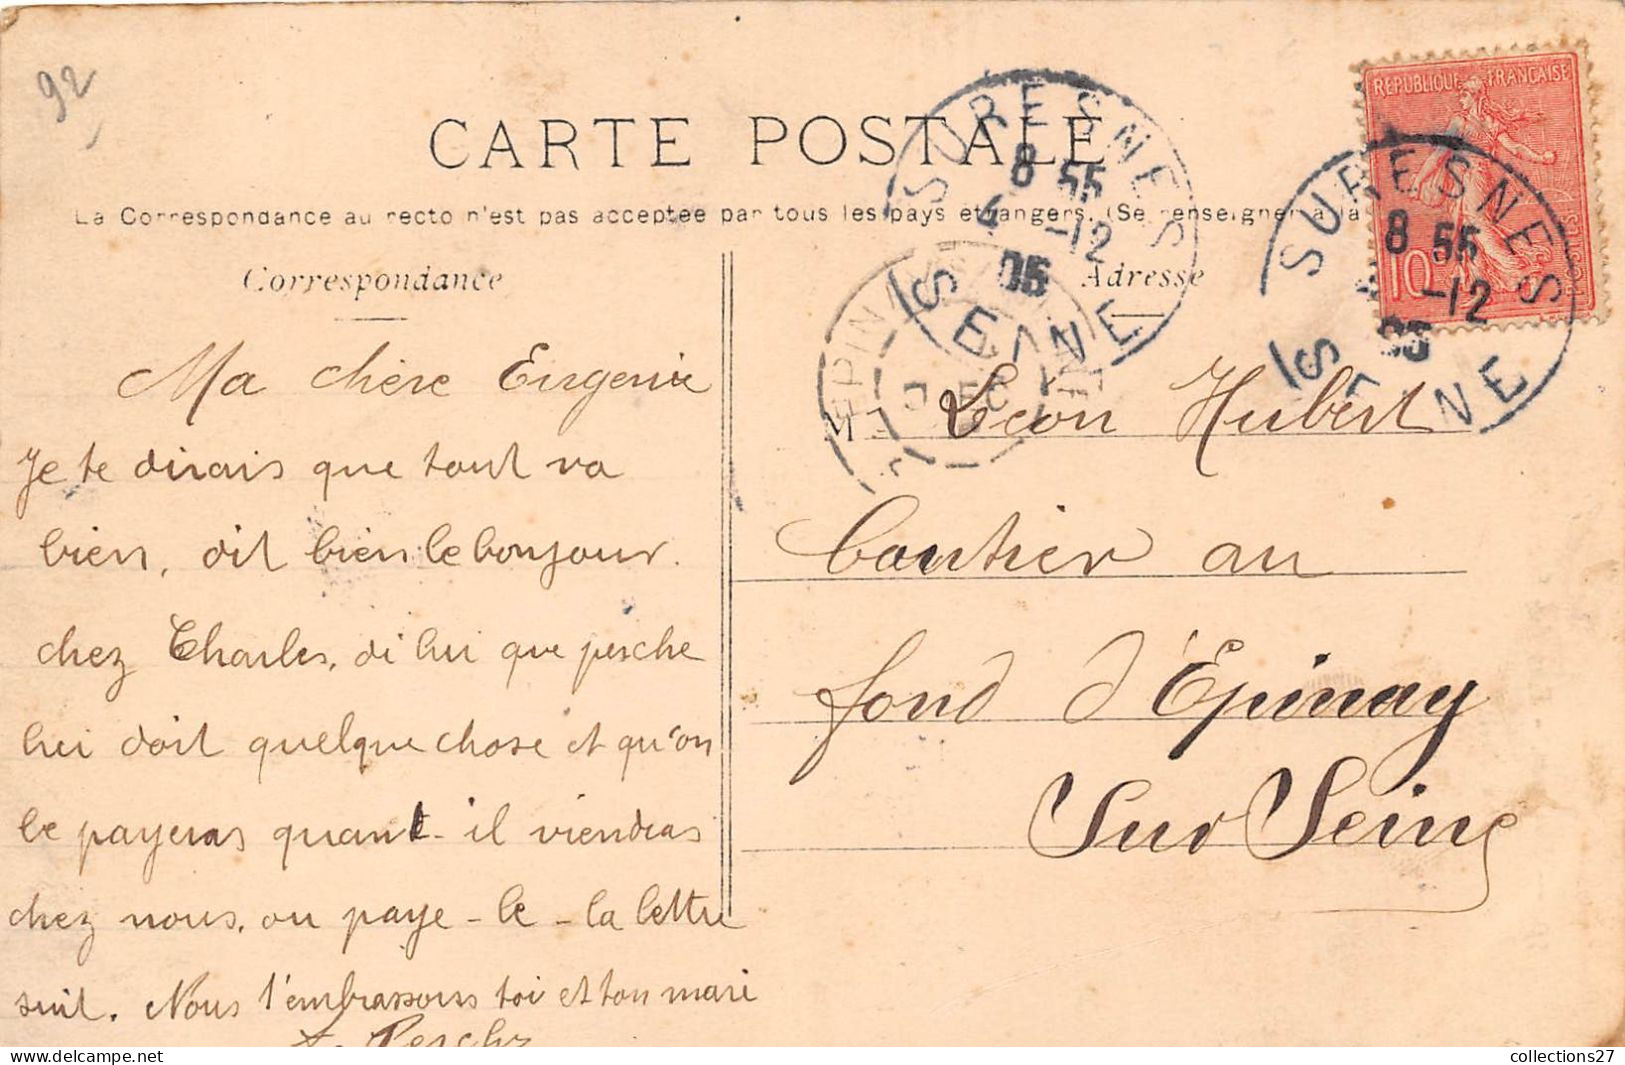 92
CARTE POSTALE
La Correspondance au recto n'est pas acceptée par tous les pays étrangers. (Se renseigner à la
Correspondance
Ma chère Eugenie
Je te dirais que tout va
bien, dit bien le bonjour.
chez Charles, di lui que perche
lui doit quelque chose et qu'on
le payeras quant - il viendras
chez nous, ou paye - le - la lettre
suit. Nous t'embrassons toi et ton mari
Adresse
M
Léon Hubert
Cantier au
fond d'Épinay
Sur Seine
SURESNES
8 55
4 -12
05
SEINE
RÉPUBLIQUE FRANÇAISE
10
POSTES
SURESNES
8 55
-12
05
SEINE
EPINAY
collections27